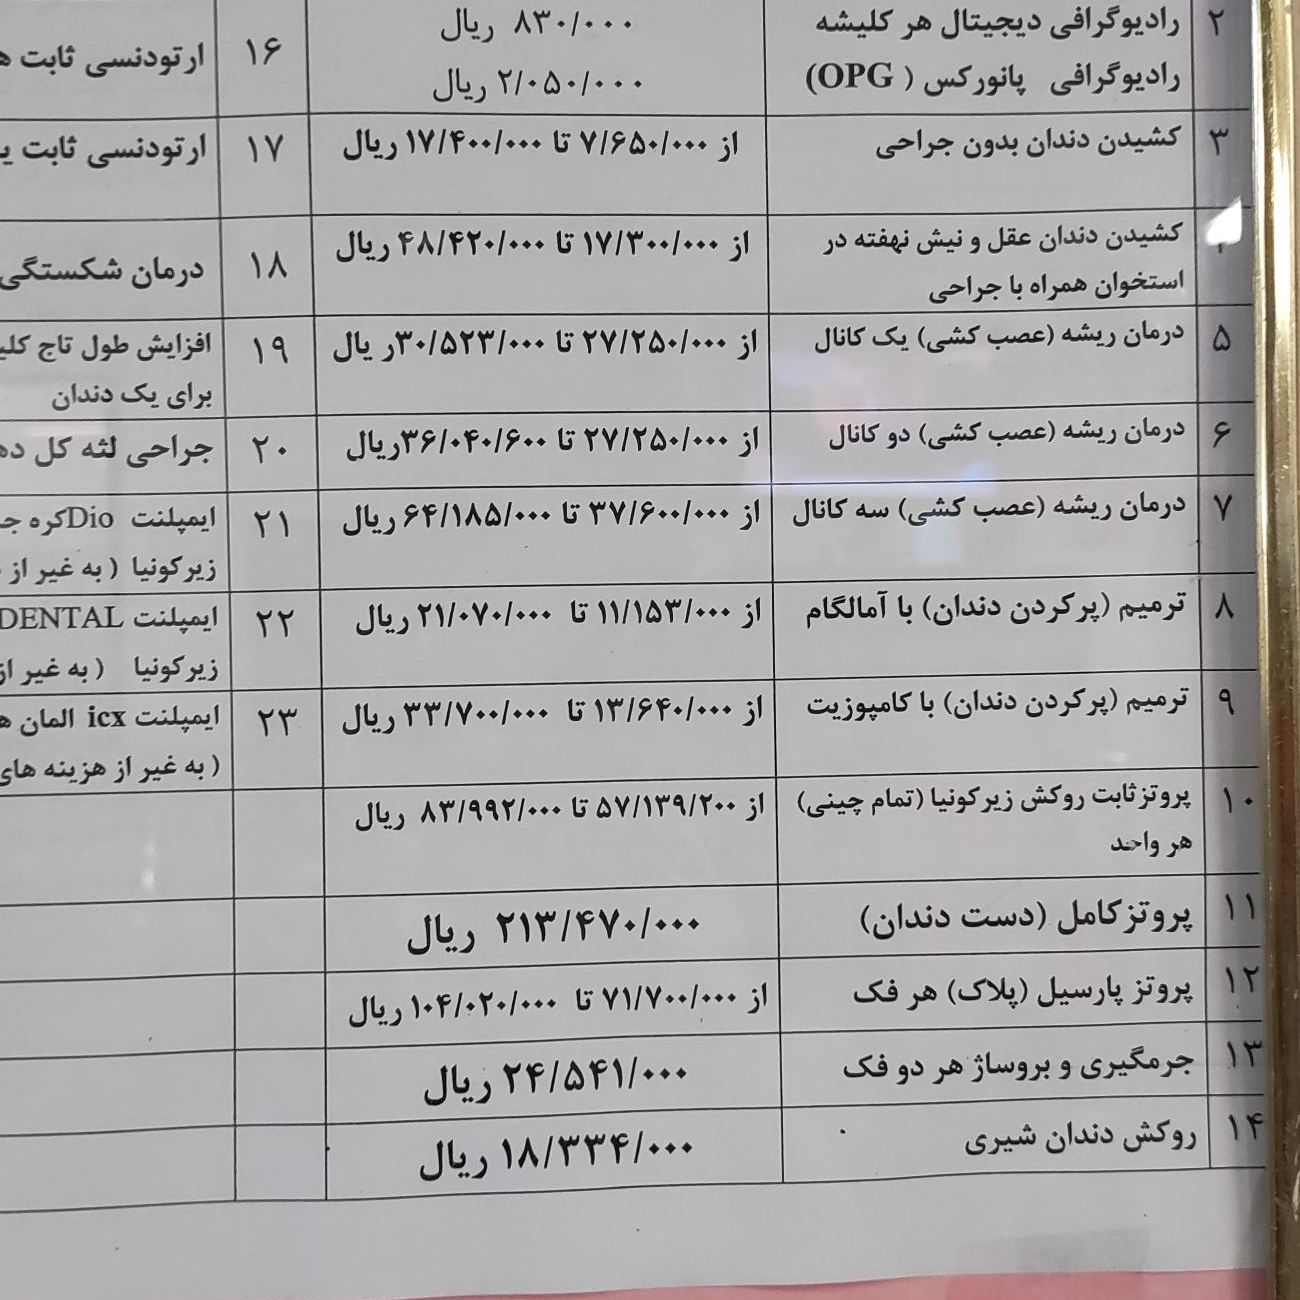 ۲
رادیوگرافی دیجیتال هر کلیشه
۸۳۰/۰۰۰ ریال
رادیوگرافی پانورکس ( OPG)
۲/۰۵۰/۰۰۰ ریال
۱۶
ارتودنسی ثابت
۳
کشیدن دندان بدون جراحی
از ۷/۶۵۰/۰۰۰ تا ۱۷/۴۰۰/۰۰۰ ریال
۱۷
ارتودنسی ثابت
کشیدن دندان عقل و نیش نهفته در
استخوان همراه با جراحی
از ۱۷/۳۰۰/۰۰۰ تا ۴۸/۴۲۰/۰۰۰ ریال
۱۸
درمان شکستگی
۵
درمان ریشه (عصب کشی) یک کانال
از ۲۷/۲۵۰/۰۰۰ تا ۳۰/۵۲۳/۰۰۰ر یال
۱۹
افزایش طول تاج
برای یک دندان
۶
درمان ریشه (عصب کشی) دو کانال
از ۲۷/۲۵۰/۰۰۰ تا ۳۶/۰۴۰/۶۰۰ریال
۲۰
جراحی لثه کل
۷
درمان ریشه (عصب کشی) سه کانال
از ۳۷/۶۰۰/۰۰۰ تا ۶۴/۱۸۵/۰۰۰ ریال
۲۱
ایمپلنت Dioکره
زیرکونیا ( به غیر از
۸
ترمیم (پرکردن دندان) با آمالگام
از ۱۱/۱۵۳/۰۰۰ تا ۲۱/۰۷۰/۰۰۰ ریال
۲۲
ایمپلنت DENTAL
زیرکونیا ( به غیر از
۹
ترمیم (پرکردن دندان) با کامپوزیت
از ۱۳/۶۴۰/۰۰۰ تا ۳۳/۷۰۰/۰۰۰ ریال
۲۳
ایمپلنت icx المان
( به غیر از هزینه های
۱۰
پروتزثابت روکش زیرکونیا (تمام چینی)
هر واحد
از ۵۷/۱۳۹/۲۰۰ تا ۸۳/۹۹۲/۰۰۰ ریال
۱۱
پروتزکامل (دست دندان)
۲۱۳/۴۷۰/۰۰۰ ریال
۱۲
پروتز پارسیل (پلاک) هر فک
از ۷۱/۷۰۰/۰۰۰ تا ۱۰۴/۰۲۰/۰۰۰ ریال
۱۳
جرمگیری و بروساژ هر دو فک
۲۴/۵۴۱/۰۰۰ ریال
۱۴
روکش دندان شیری
۱۸/۳۳۴/۰۰۰ ریال